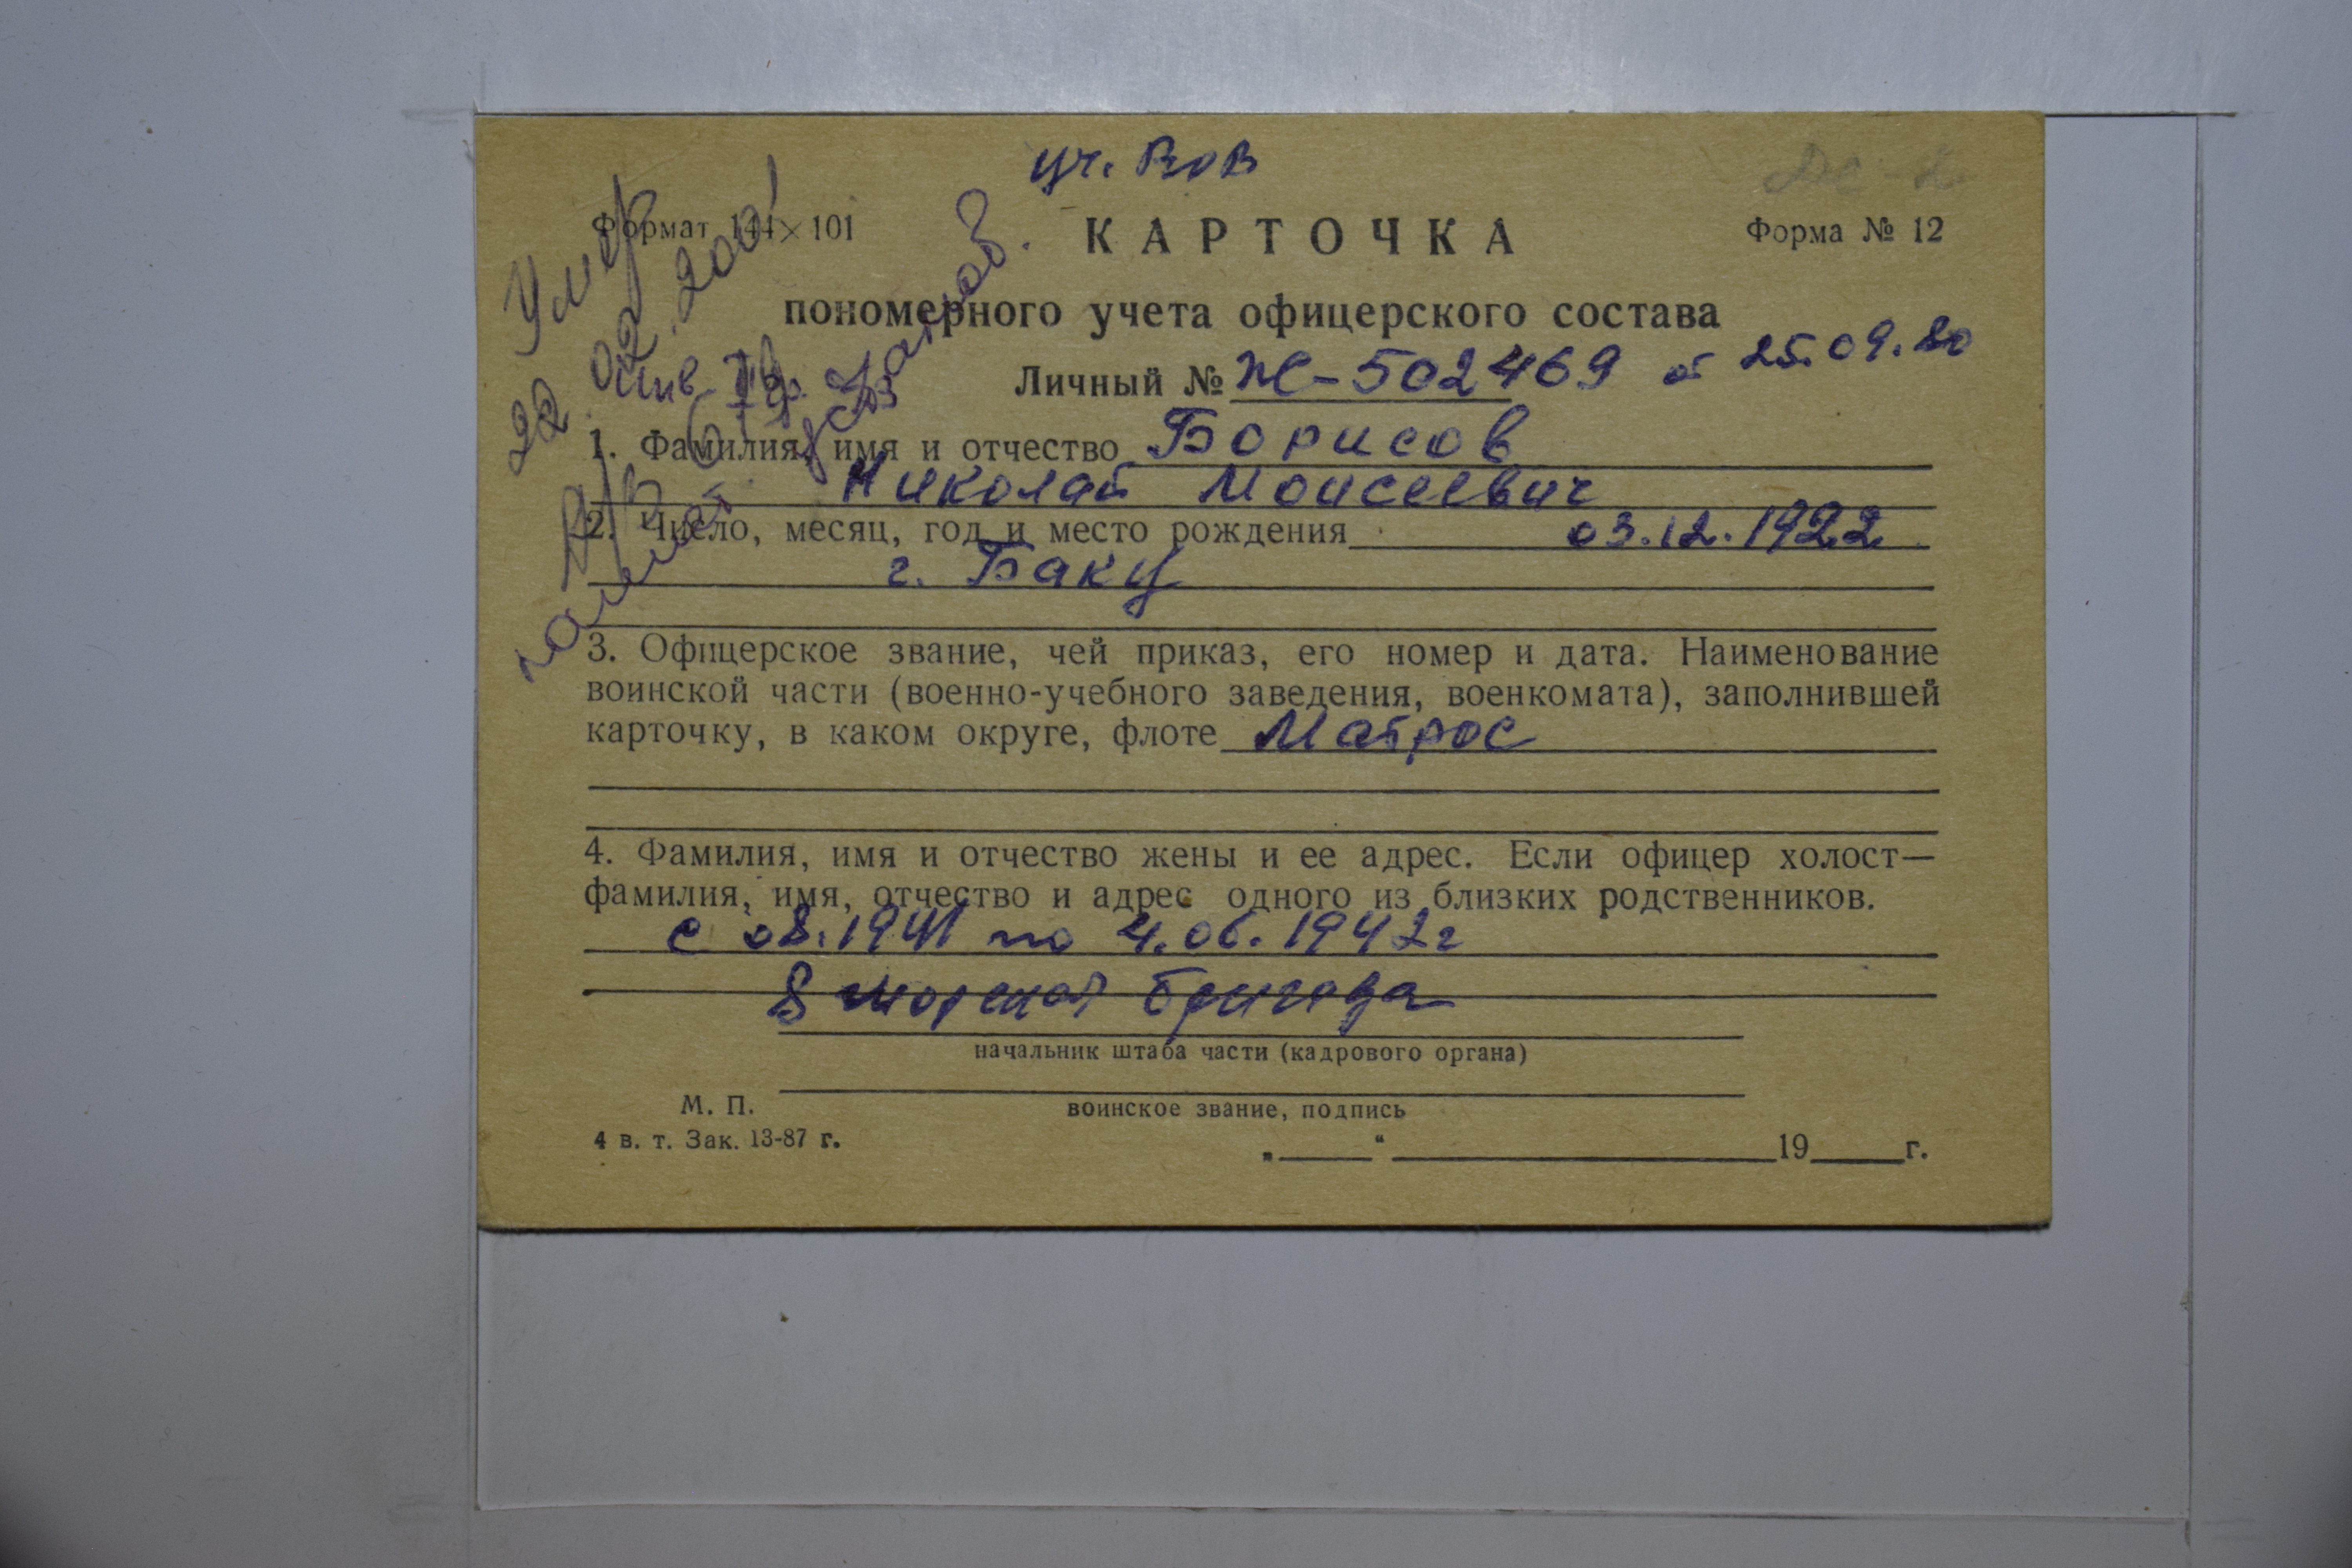 уч. ВОВ
Формат 144×101
КАРТОЧКА
Форма № 12
пономерного учета офицерского состава
Личный № Ж-502469 от 25.09.80
Умер
22 02.2001
инв. II гр.
1. Фамилия, имя и отчество Борисов
Николай Моисеевич
2. Число, месяц, год и место рождения 03.12.1922
г. Баку
3. Офицерское звание, чей приказ, его номер и дата. Наименование
воинской части (военно-учебного заведения, военкомата), заполнившей
карточку, в каком округе, флоте Матрос
4. Фамилия, имя и отчество жены и ее адрес. Если офицер холост—
фамилия, имя, отчество и адрес одного из близких родственников.
с 08.1941 по 4.06.1942г
8 морская бригада
начальник штаба части (кадрового органа)
М. П.
воинское звание, подпись
4 в. т. Зак. 13-87 г.
„ “ 19 г.